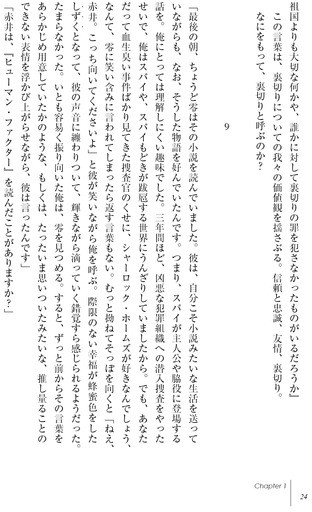 祖国よりも大切な何かや、誰かに対して裏切りの罪を犯さなかったものがいるだろうか」
この言葉は、裏切りについての我々の価値観を揺さぶる。信頼と忠誠、友情、裏切り。
なにをもって、裏切りと呼ぶのか?
9
「最後の朝、ちょうど零はその小説を読んでいました。彼は、自分こそ小説みたいな生活を送って
いながらも、なお、そうした物語を好んでいたんです。つまり、スパイが主人公や脇役に登場する
話を。俺にとっては理解しにくい趣味でした。三年間ほど、凶悪な犯罪組織への潜入捜査をやった
せいで、俺はスパイや、スパイもどきが跋扈する世界にうんざりしていましたから。でも、あな
だって血生臭い事件ばかり見てきた捜査官のくせに、シャーロック・ホームズが好きなんでしょう、
なんて、零に笑い含みに言われてしまったら返す言葉もない。むっと拗ねてそっぽを向くと「ねえ、
赤井。こっち向いてくださいよ」と彼が笑いながら俺を呼ぶ。際限のない幸福が蜂蜜色をした
しずくとなって、彼の声音に纏わりついて、輝きながら滴っていく錯覚すら感じられるようだった。
たまらなかった。いとも容易く振り向いた俺は、零を見つめる。すると、ずっと前からその言葉を
あらかじめ用意していたかのような、もしくは、たったいま思いついたみたいな、推し量ることの
できない表情を浮かび上がらせながら、彼は言ったんです」
「赤井は、『ヒューマン・ファクター』を読んだことがありますか?」
Chapter 1
24